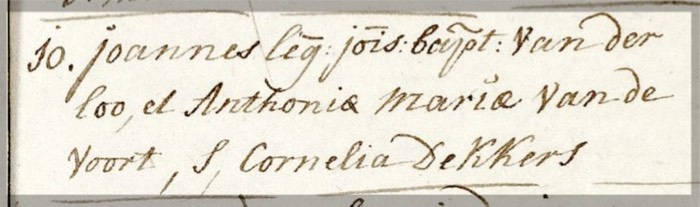 10. Joannes leg̅: jo̅is: bapt̅: Van der
Loo, et Anthoniæ Mariæ Van de
Voort, S, Cornelia DeKKers